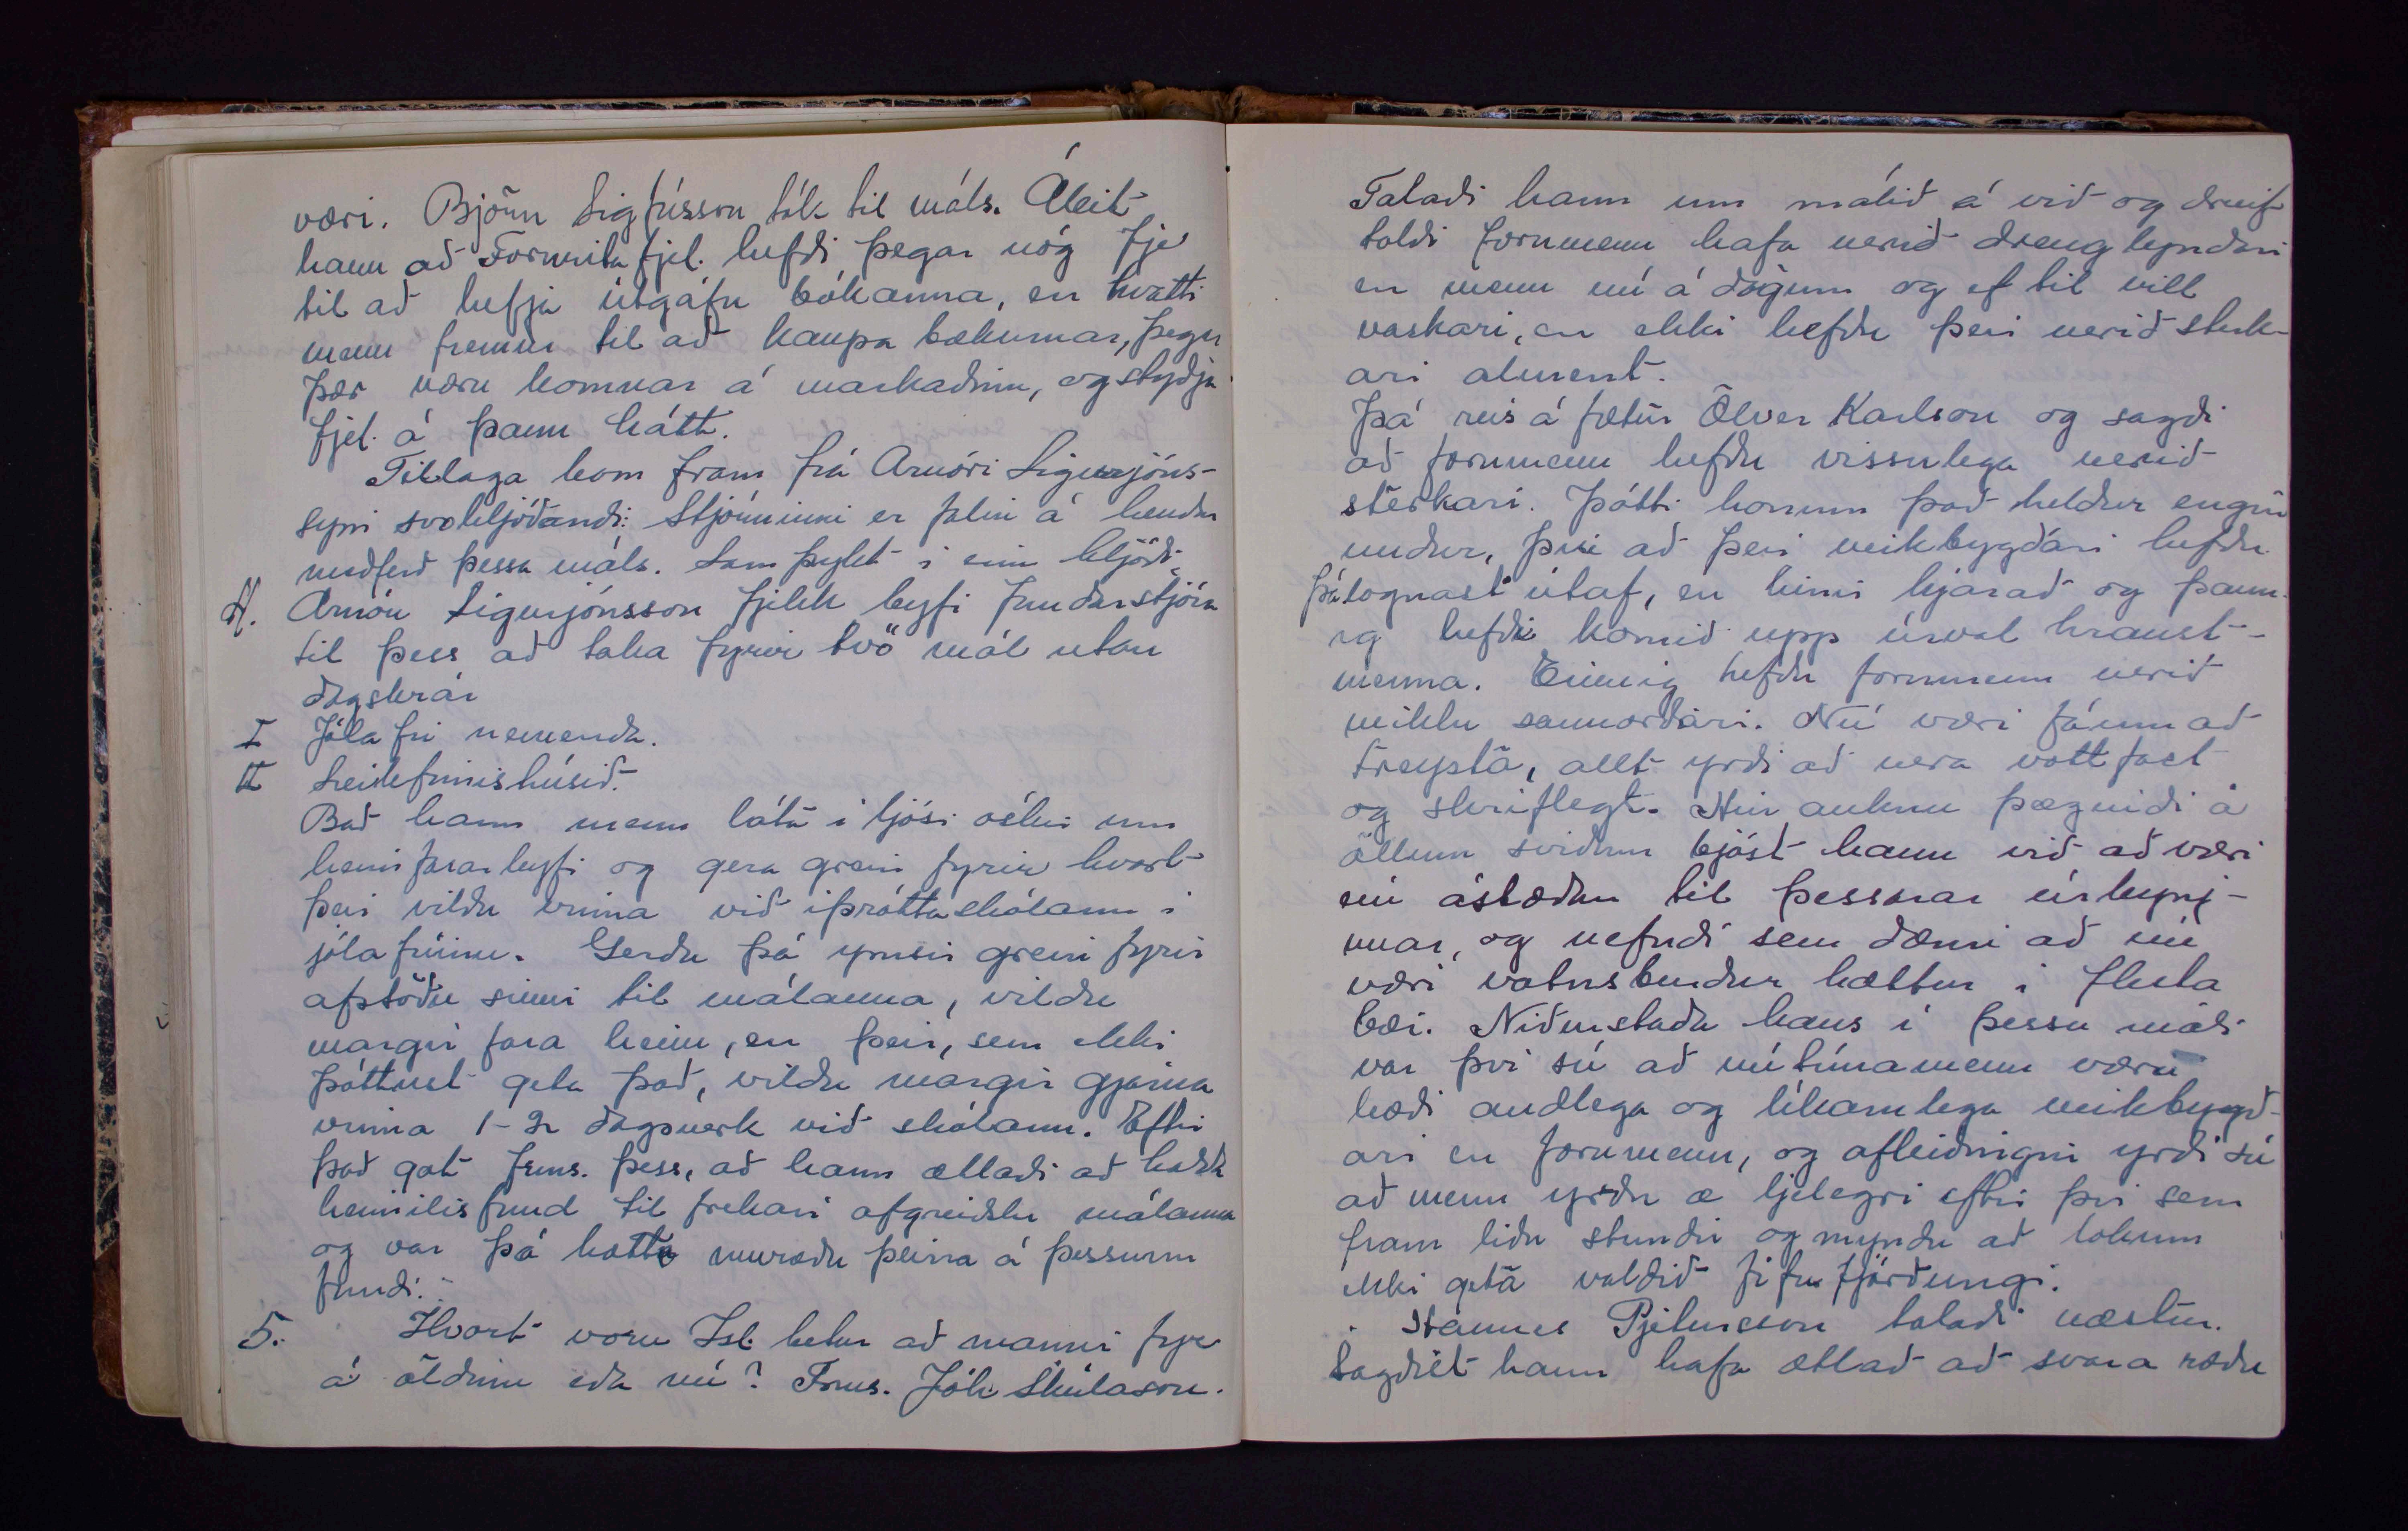 væri. Björn Sigfússon tók til máls. Áleit
hann að Fornritafjel. hefði þegar nóg fje
til að hefja útgáfu bókanna, en hvatti
menn fremur til að kaupa bækurnar, þegar
þær væru komnar á markaðinn, og styðja
fjel. á þann hátt.
Tillaga kom fram frá Arnóri Sigurjóns-
syni svohljóðandi: Stjórninni er falin á hendur
meðferð þessa máls. Samþykt í einu hljóði.
4. Arnór Sigurjónsson fjekk leyfi fundarstjóra
til þess að taka fyrir tvö mál utan
dagskrár
I Jólafrí nemenda.
II Leikfimishúsið.
Bað hann menn láta í ljósi óskir um
heimfararleyfi og gera grein fyrir hvort
þeir vildu vinna við íþróttaskólann í
jólafríinu. Gerðu þá ymsir grein fyrir
afstöðu sinni til málanna, vildu
margir fara heim, en þeir, sem ekki
þóttust geta það, vildu margir gjarna
vinna 1-2 dagsverk við skólann. Eftir
það gat frms. þess, að hann ætlaði að halda
heimilisfund til frekari afgreiðslu málanna
og var þá hætt umræðu þeirra á þessum
fundi.
5. Hvort voru Ísl. betur að manni fyr
á öldum eða nú? Frms. Jóh. Skúlason.
Talaði hann um málið á við og dreif
taldi fornmenn hafa verið drenglyndari
en menn nú á dögum og ef til vill
vaskari, en ekki hefðu þeir verið sterk-
ari alment.
Þá reis á fætur Ölver Karlson og sagði
að fornmenn hefðu vissulega verið
sterkari. Þótti honum það heldur engin
undur, því að þeir veikbygðari hefðu
þá lognast útaf, en hinir hjarað og þann-
ig hefði komið upp úrval hraust-
menna. Einnig hefðu fornmenn verið
miklu sannorðari. Nú væri fáum að
treysta, allt yrði að vera vottfast
og skriflegt. Hin auknu þægindi á
öllum sviðum bjóst hann við að væri
ein ástæðan til þessarar úrkynj-
unar, og nefndi sem dæmi að nú
væri vatnsburður hættur í flesta
bæi. Niðurstaða hans í þessu máli
var því sú að nútímamenn væru
bæði andlega og líkamlega veikbygð-
ari en fornmenn, og afleiðingin yrði sú
að menn yrðu æ ljelegri eftir því sem
fram liðu stundir og myndu að lokum
ekki geta valdið fífu fjórðungi.
Hannes Pjetursson talaði næstur.
Sagðist hann hafa ætlað að svara ræðu